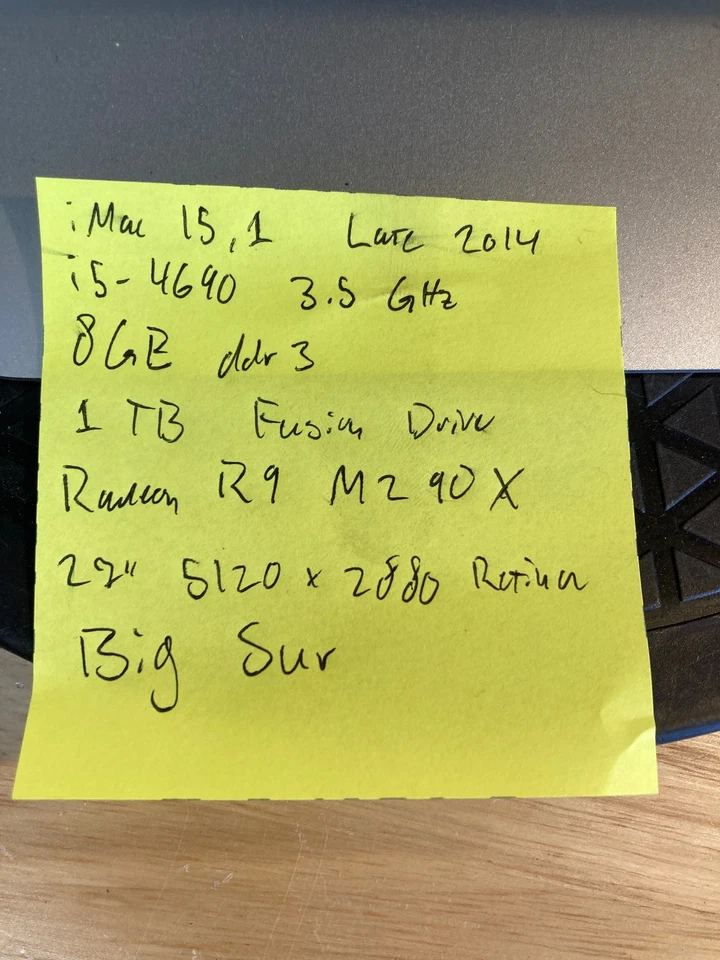 iMac 15,1 Late 2014
i5-4690 3.5 GHz
8GB ddr3
1 TB Fusion Drive
Radeon R9 M290X
27" 5120 x 2880 Retina
Big Sur